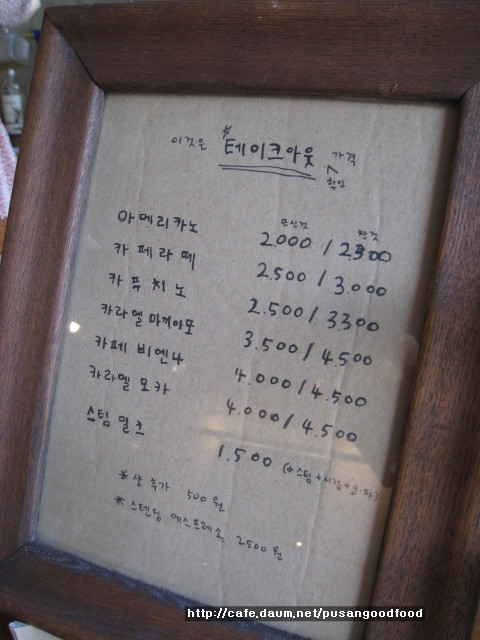 이것은 *테이크아웃 가격
할인
뜨신것 찬것
아메리카노 2000 / 2300
카페라떼 2.500 / 3.000
카푸치노 2.500 / 3300
카라멜 마끼아또 3.500 / 4.500
카페 비엔나 4.000 / 4.500
카라멜 모카 4.000 / 4.500
스팀 밀크 1.500
* 샷 추가 500원
* 스텐딩 에스프레소 2500원
http://cafe.daum.net/pusangoodfood